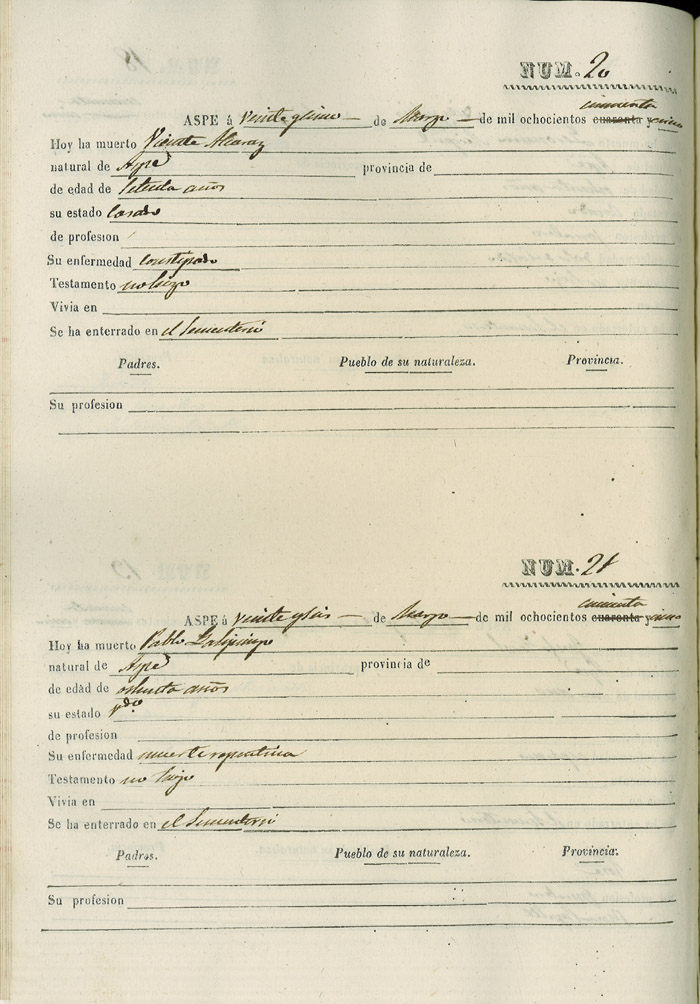 NUM. 20
cincuenta
ASPE á veinte y cinco de Marzo de mil ochocientos cuarenta y cinco
Hoy ha muerto Vicente Alcaraz
natural de Aspe provincia de
de edad de setenta años
su estado Casado
de profesion
Su enfermedad constipado
Testamento no hizo
Vivia en
Se ha enterrado en el Sementerio
Padres. Pueblo de su naturaleza. Provincia.
Su profesion
NUM. 21
cincuenta
ASPE á veinte y seis de Marzo de mil ochocientos cuarenta y cinco
Hoy ha muerto Pablo
natural de Aspe provincia de
de edad de ochenta años
su estado Vdo
de profesion
Su enfermedad muerte repentina
Testamento no hizo
Vivia en
Se ha enterrado en el Sementerio
Padres. Pueblo de su naturaleza. Provincia.
Su profesion